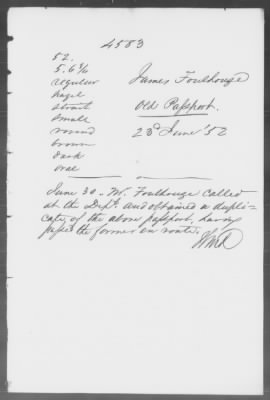 4583
52.
5.6 3/4
regular
hazel
strait
small
round
brown
dark
oval
James Foulhouze
Old Passport.
28 June '52
June 30. Mr. Foulhouze called
at the Dept. and obtained a dupli-
cate of the above passport, having
the former en route.